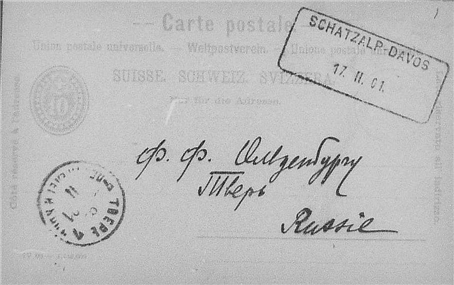 Carte postale.
Union postale universelle. — Weltpostverein. — Unione postale
SUISSE. SCHWEIZ. SVIZZERA.
Nur für die Adresse.
SCHATZALP-DAVOS
17. II. 01.
10
Côté réservé à l'adresse.
Ф. Ф. Ольденбургу
Тверь
Russie
ТВЕРЬ